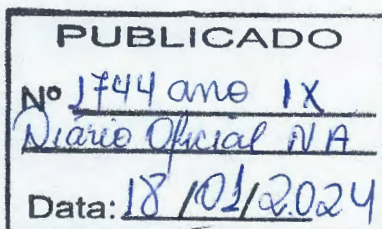 PUBLICADO
Nº 1744 ano IX
Diário Oficial NA
Data: 18/01/2024